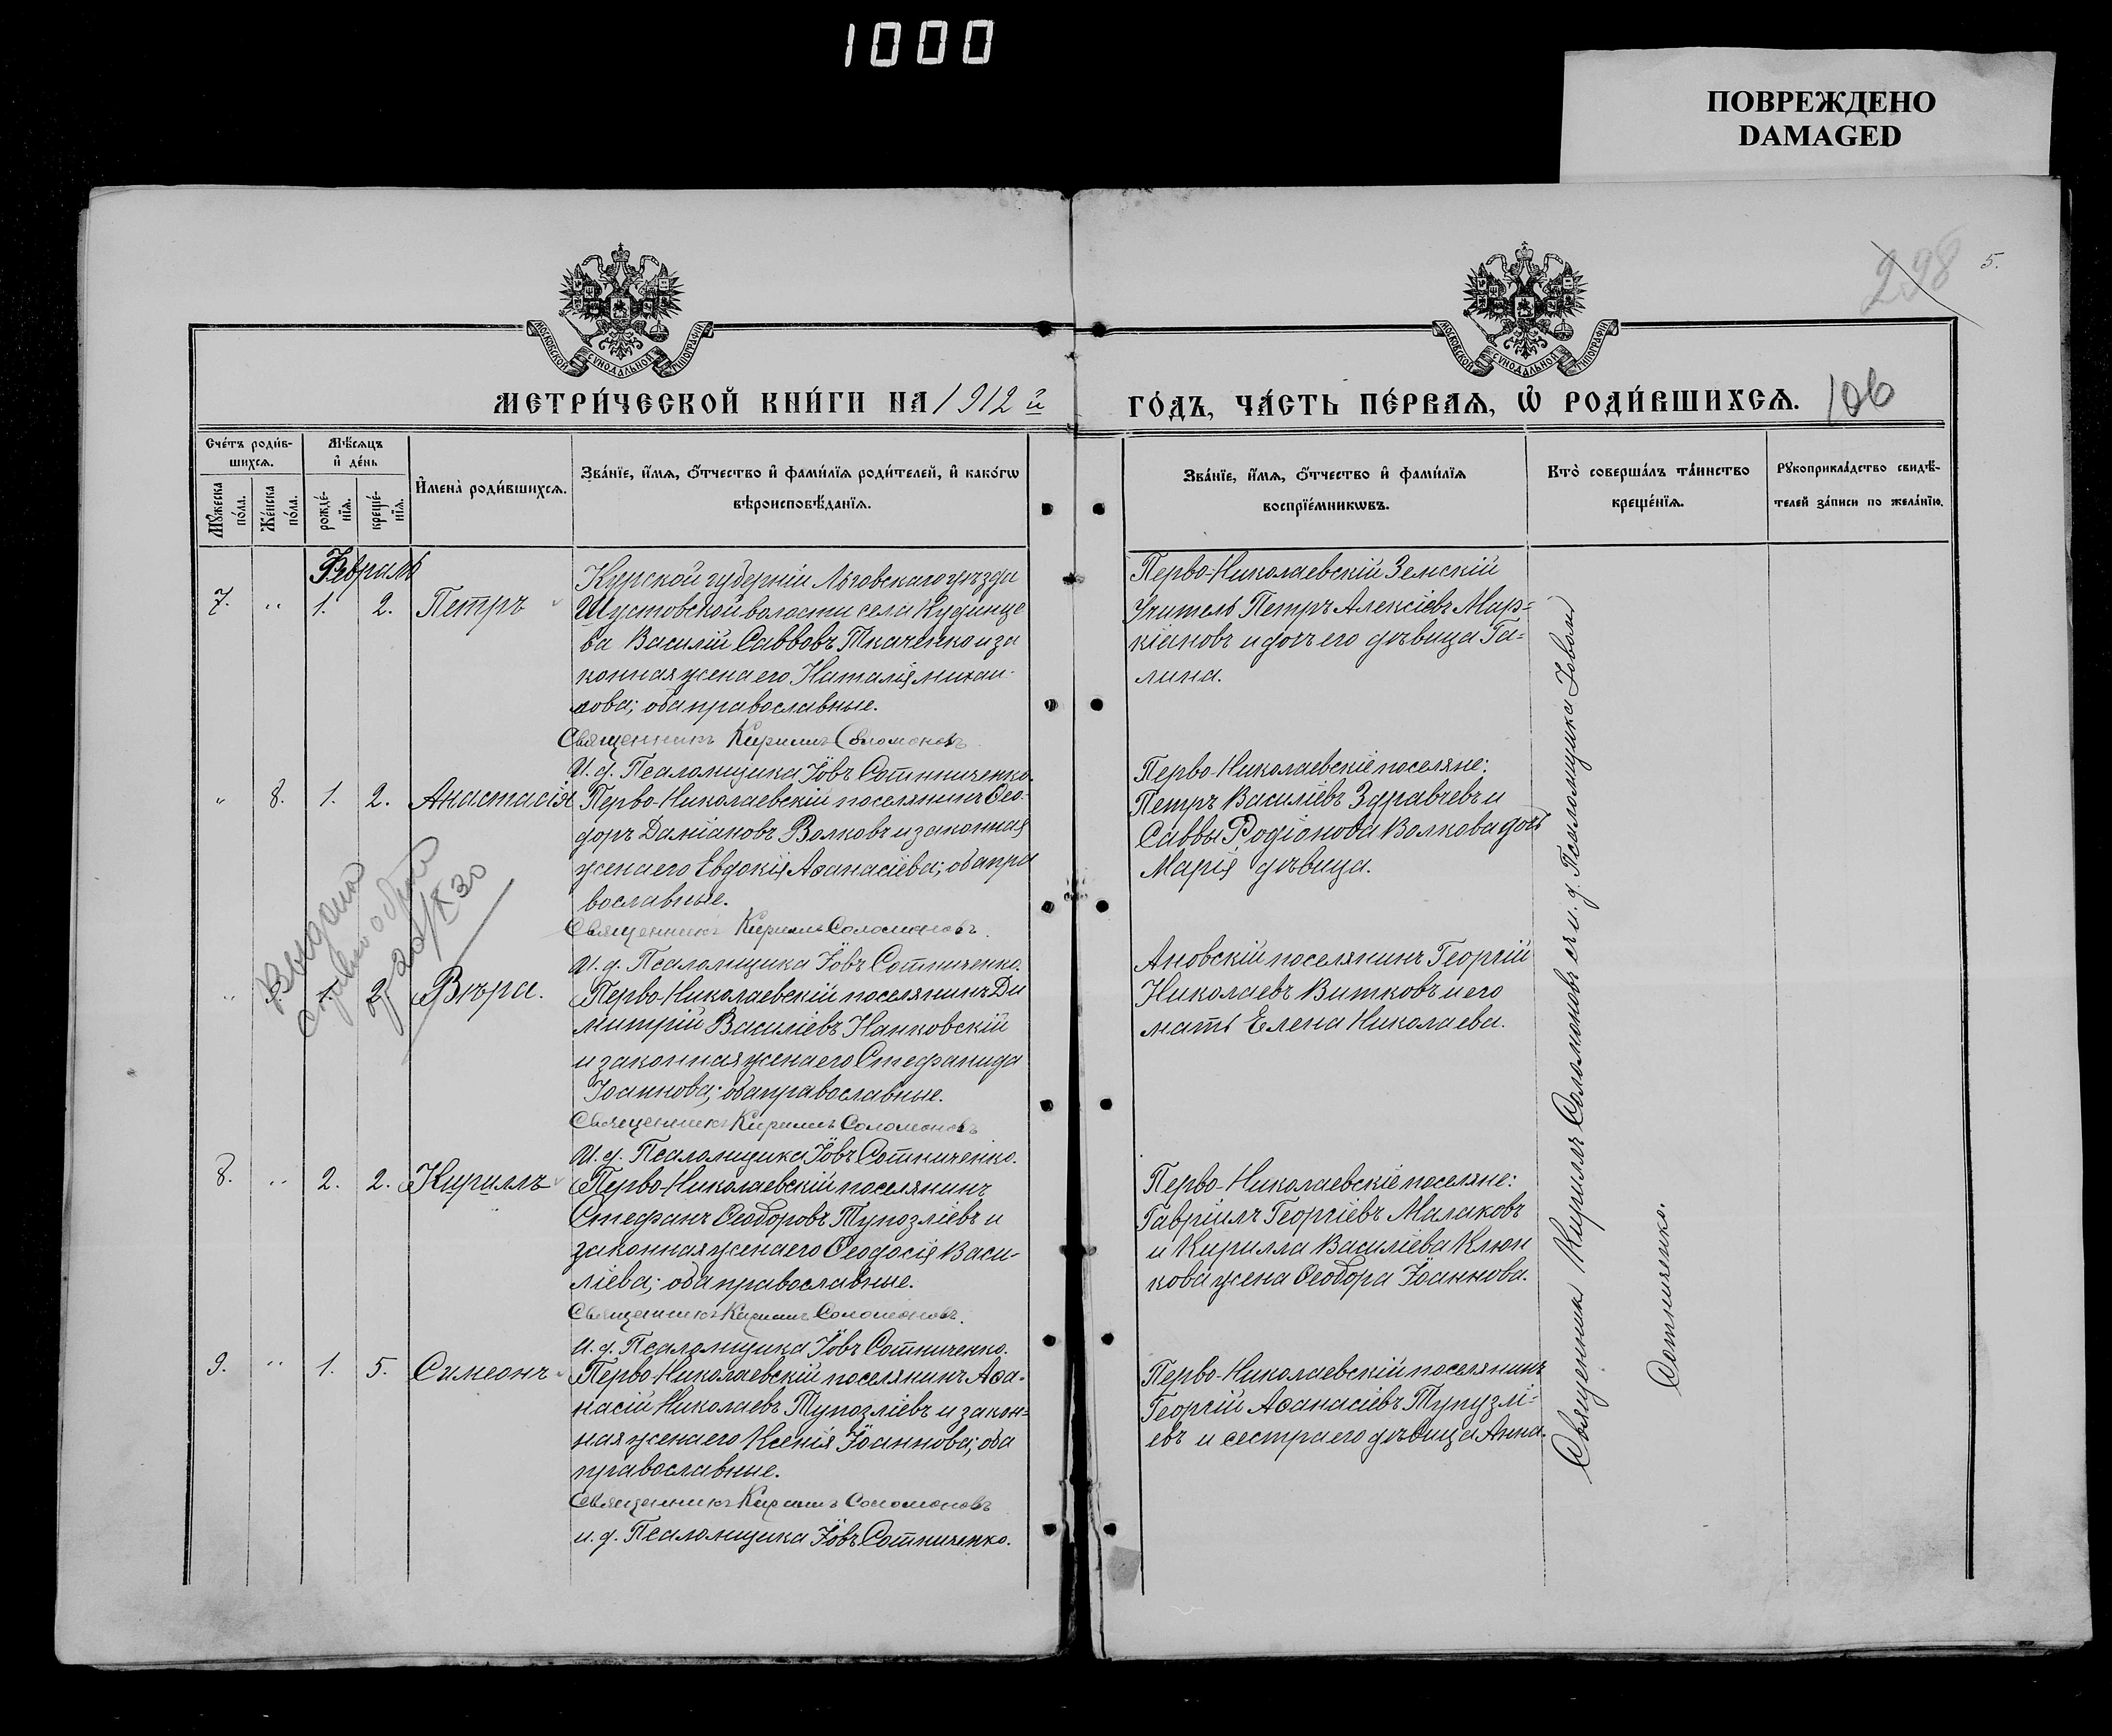 1000
ПОВРЕЖДЕНО
DAMAGED
298
5.
МОСКОВСКОЙ СѴНОДАЛЬНОЙ ТИПОГРАФІИ
МОСКОВСКОЙ СѴНОДАЛЬНОЙ ТИПОГРАФІИ
МЕТРИ́ЧЕСКОЙ КНИ́ГИ НА 1912 й
ГО́ДЪ, ЧА́СТЬ ПЕ́РВАѦ, Ѡ҆ РОДИ́ВШИХСѦ. 106
Сче́тъ роди́в-
шихсѧ.
Мꙋ́жеска по́ла.
Же́нска по́ла.
Мѣ́сѧцъ
и҆ де́нь
рожде́-нїѧ.
креще́-нїѧ.
И҆мена̀ роди́вшихсѧ.
Зва́нїе, и҆́мѧ, ѻ҆́тчество и҆ фами́лїѧ роди́телей, и҆ како́гѡ
вѣроисповѣ́данїѧ.
Зва́нїе, и҆́мѧ, ѻ҆́тчество и҆ фами́лїѧ
воспрїе́мникѡвъ.
Кто̀ соверша́лъ та́инство
креще́нїѧ.
Рꙋкоприкла́дство свидѣ́-
телей за́писи по жела́нїю.
Февраль
7. " 1. 2. Петръ
Курской губерніи Льговскаго уѣзда
Шустовской волости села Кудинце
ва Василій Саввовъ Ткаченко и за
конная жена его Наталія Михаи-
лова; оба православные.
Священникъ Кириллъ Соломоновъ
И. д. Псаломщика Іовъ Сотниченко.
Перво-Николаевскій Земскій
Учитель Петръ Алексіевъ Мар=
кіановъ и дочь его дѣвица Га=
лина.
" 8. 1. 2. Анастасія
Перво-Николаевскій поселянинъ Ѳео-
доръ Даміановъ Волковъ и законная
жена его Евдокія Аѳанасіева; оба пра
вославные.
Священникъ Кириллъ Соломоновъ.
И. д. Псаломщика Іовъ Сотниченко.
Перво-Николаевскіе поселяне:
Петръ Василіевъ Здравчевъ и
Саввы Родіонова Волкова дочь
Марія дѣвица.
Выдана
" 1. 2. Вѣра.
Перво-Николаевскій поселянинъ Ди
митрій Василіевъ Панковскій
и законная жена его Стефанида
Іоаннова; оба православные.
Священникъ Кириллъ Соломоновъ
И. д. Псаломщика Іовъ Сотниченко.
Ановскій поселянинъ Георгій
Николаевъ Витковъ и его
мать Елена Николаева.
8. " 2. 2. Кириллъ
Перво-Николаевскій поселянинъ
Стефанъ Ѳеодоровъ Тупозліевъ и
законная жена его Ѳеодосія Васи-
ліева; оба православные.
Священникъ Кириллъ Соломоновъ.
И. д. Псаломщика Іовъ Сотниченко.
Перво-Николаевскіе поселяне:
Гавріилъ Георгіевъ Малаковъ
и Кирилла Василіева Клюн
кова жена Ѳеодора Іоаннова.
9. " 1. 5. Симеонъ
Перво-Николаевскій поселянинъ Аѳа-
насій Николаевъ Тупозліевъ и закон=
ная жена его Ксенія Іоаннова; оба
православные.
Священникъ Кириллъ Соломоновъ
и. д. Псаломщика Іовъ Сотниченко.
Перво-Николаевскій поселянинъ
Георгій Аѳанасіевъ Тупузлі=
евъ и сестра его дѣвица Анна.
Священник Кириллъ Соломоновъ съ и. д. Псаломщика Іовом
Сотниченко.